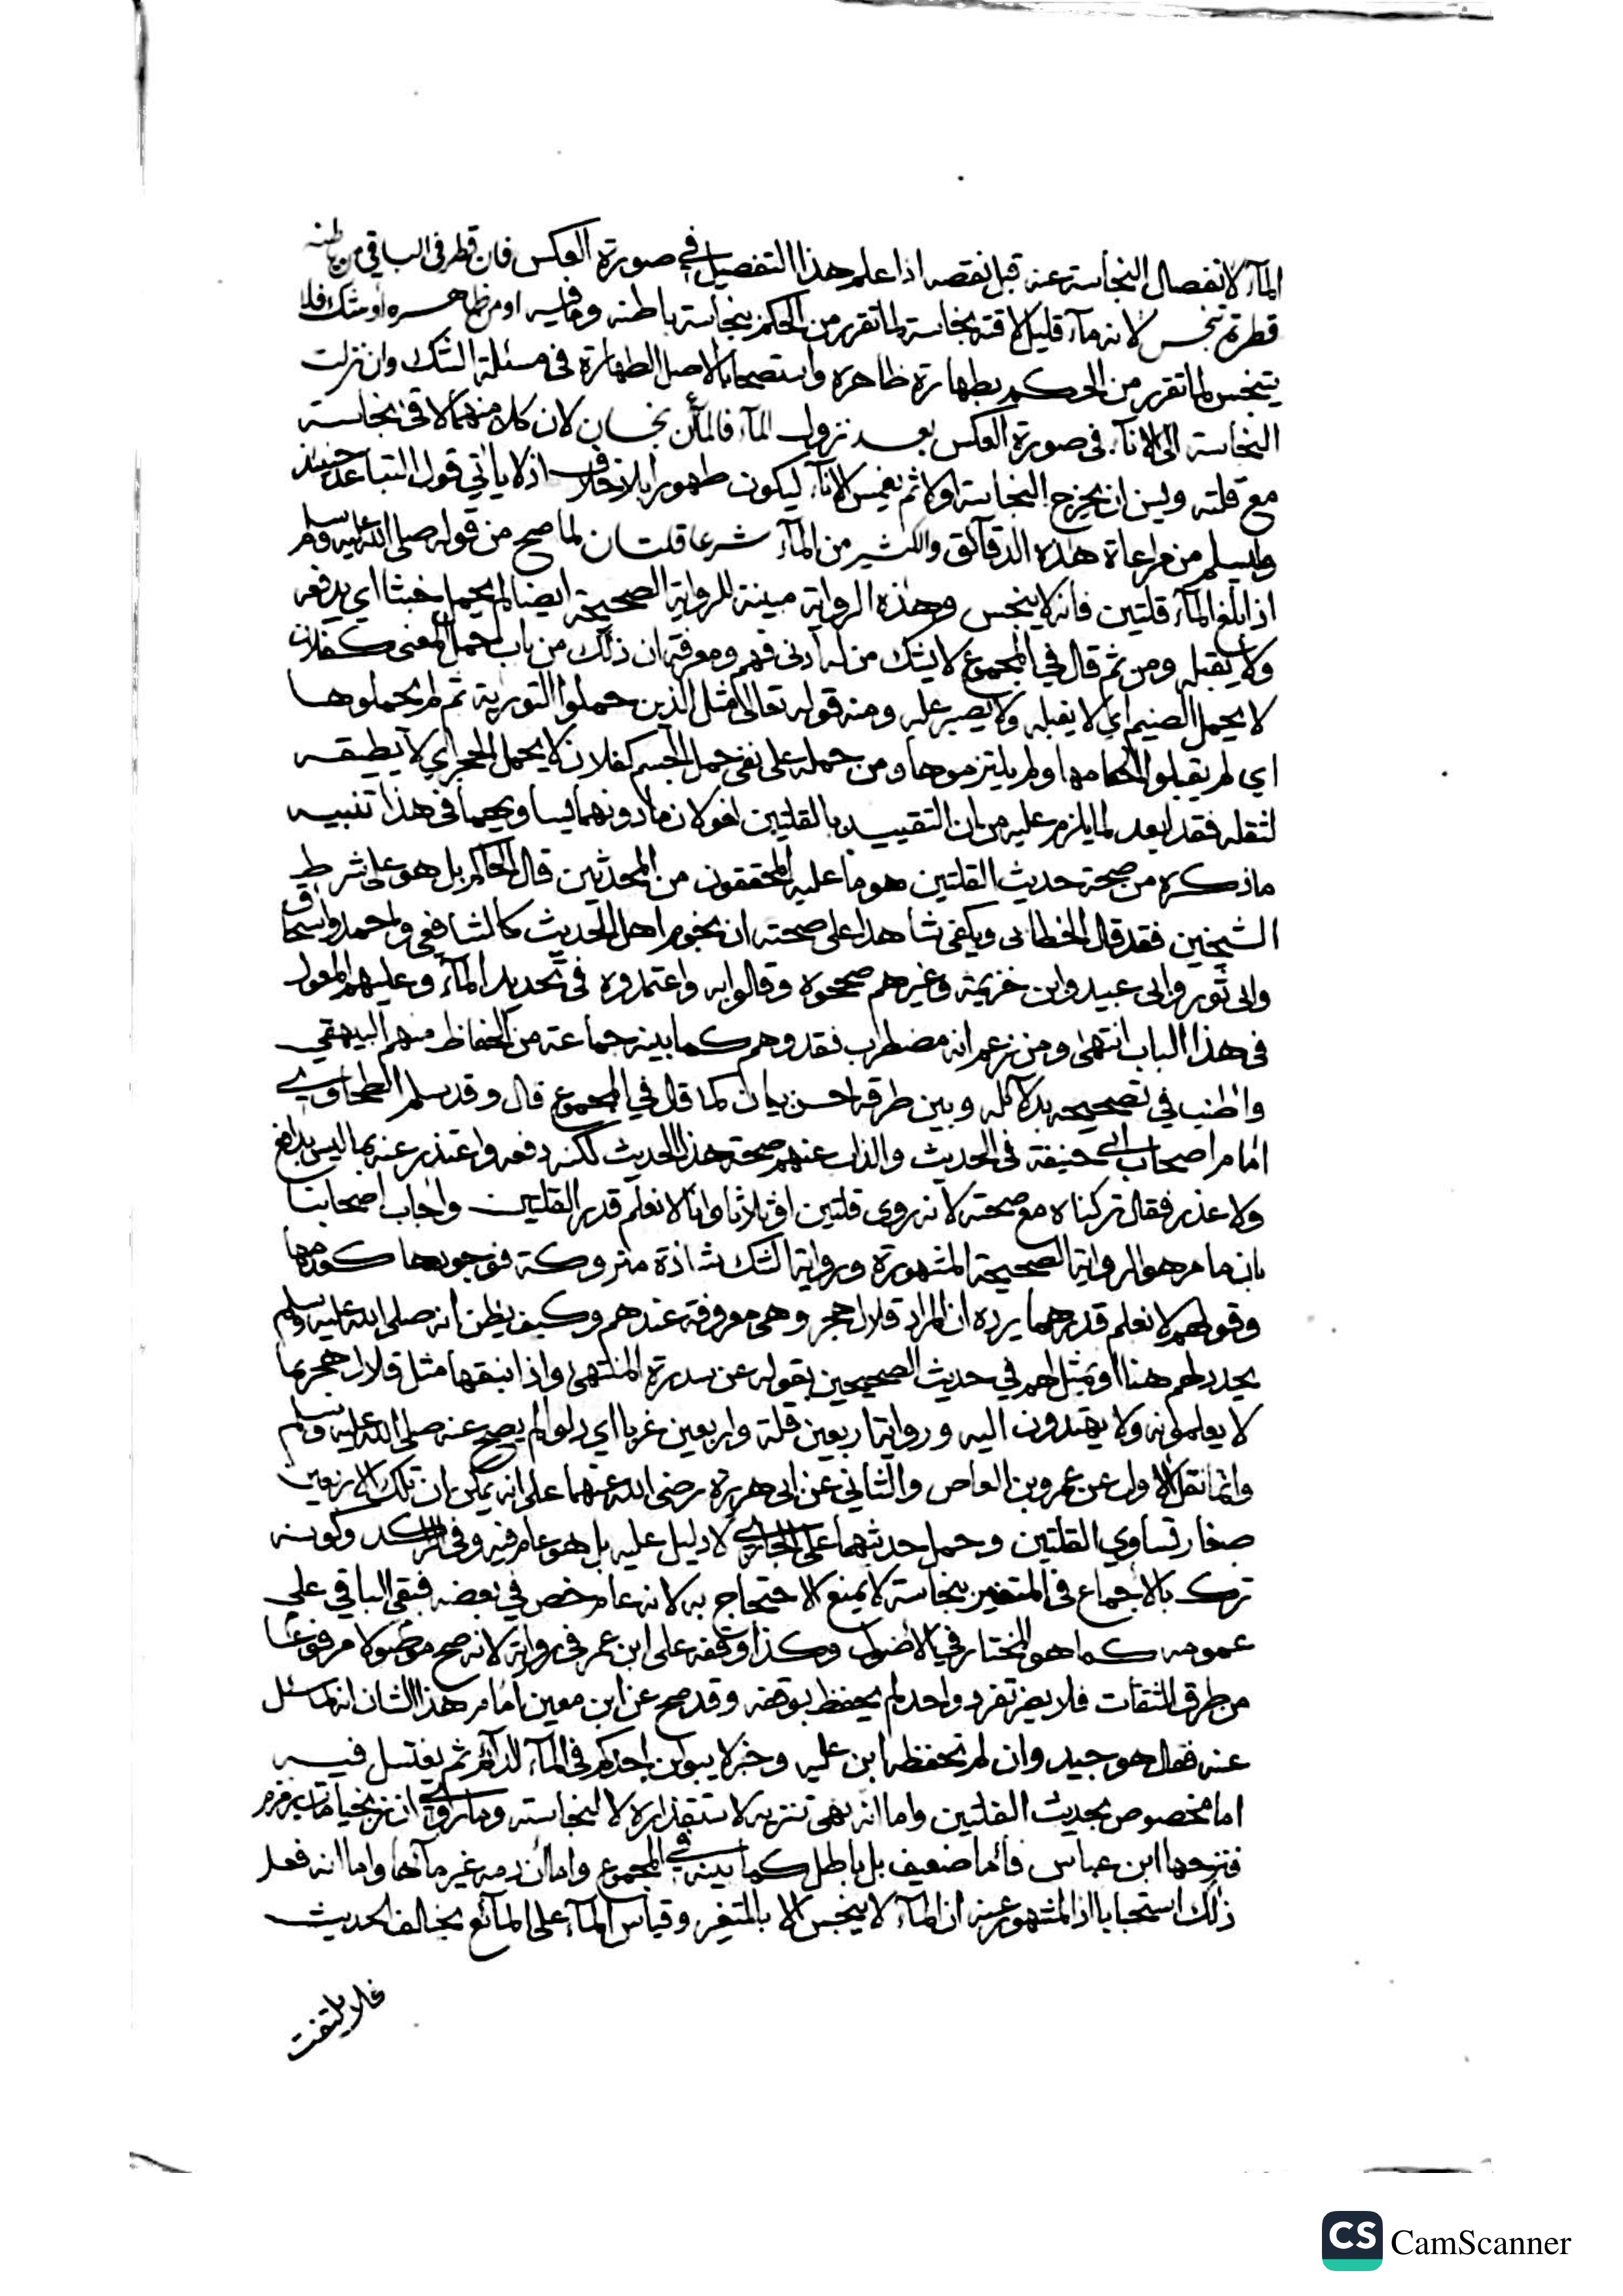 المآء لانفصال النجاسة عنه قبل نقصه اذا علم هذا التفصيل في صورة العكس فان قطر في الباقي من باطنه
قطرة تنجس لانه مآء قليل لاقته نجاسة لما تقرر من الحكم بنجاسة باطنه وقليه او من ظاهره او شك فلا
يتنجس لما تقرر من الحكم بطهارة ظاهره واستصحابا لاصل الطهارة في مسئلة الشك وان نزلت
النجاسة الى الانآء في صورة العكس بعد نزول المآء فالمآئن نجسان لان كلا منهما لاقى نجاسة
مع قلته وليس ان يخرج النجاسة اولا ثم يغمس الانآء ليكون طهورا بلا خلاف اذ لا ياتي قول التباعد حينئذ
وليسلم من مراعاة هذه الدقآئق والكثير من المآء شرعا قلتان لما صح من قوله صلى الله عليه وسلم
اذا بلغ المآء قلتين فانه لا ينجس وهذه الرواية مبينة للرواية الصحيحة ايضا لم يحمل خبثا اي يدفعه
ولا يقبله ومن ثم قال في المجموع لا يشك من له ادنى فهم ومعرفة ان ذلك من باب حمل المعنى كفلان
لا يحمل الضيم اي لا يقبله ولا يصبر عليه ومنه قوله تعالى مثل الذين حملوا التورية ثم لم يحملوها
اي لم يقبلوا احكامها ولم يلتزموها ومن حمله على نفي حمل الجسم كفلان لا يحمل الحجر اي لا يطيقه
لثقله فقد ابعد لما يلزم عليه من ان التقييد بالقلتين لغو لان ما دونهما يساويهما في هذا تنبيه
ما ذكره من صحة حديث القلتين هو ما عليه المحققون من المحدثين قال الحاكم بل هو على شرط
الشيخين فقد قال الخطابي ويكفي شاهدا على صحته ان نجوم اهل الحديث كالشافعي واحمد واسحاق
وابى ثور وابى عبيد وابن خزيمة وغيرهم صححوه وقالوا به واعتمدوه في تحديد المآء وعليهم المعول
في هذا الباب انتهى ومن زعم انه مضطرب فقد وهم كما بينه جماعة من الحفاظ منهم البيهقي
واطنب في تصحيحه بدلآئله وبين طرقه احسن بيان كما قال في المجموع قال وقد سلم الطحاوي
امام اصحاب ابي حنيفة في الحديث والذاب عنهم صحة هذا الحديث لكنه دفعه واعتذر عنه بما ليس بدافع
ولا عذر فقال تركناه مع صحته لانه روى قلتين او ثلاثا وانا لا نعلم قدر القلتين واجاب اصحابنا
بان ما مر هو الرواية الصحيحة المشهورة ورواية الشك شاذة متروكة فوجودها كعدمها
وقولهم لا نعلم قدرهما يرده ان المراد قلال هجر وهي معروفة عندهم وكيف يظن انه صلى الله عليه وسلم
يحدد لهم هنا او يمثل لهم في حديث الصحيحين بقوله عن سدرة المنتهى واذا نبقها مثل قلال هجر بما
لا يعلمونه ولا يهتدون اليه ورواية اربعين قلة واربعين غربا اي دلوا لم يصح عنه صلى الله عليه وسلم
وانما نقل الاول عن عمرو بن العاص والثاني عن ابى هريرة رضى الله عنهما على انه يمكن ان تلك الاربعين
صغار تساوي القلتين وحمل حديثهما على الجاري لا دليل عليه بل هو عام فيه وفي الراكد وكونه
ترك بالاجماع في المتغير بنجاسة لا يمنع الاحتجاج به لانه عام خص في بعضه فبقى الباقي على
عمومه كما هو المختار في الاصول وكذا وقفه على ابن عمر في رواية لانه صح موصولا مرفوعا
من طرق الثقات فلا يضر تفرد واحد لم يحفظ بوقفه وقد صح عن ابن معين امام هذا الشان انه لما سئل
عنه فقال هو جيد وان لم تحفظه ابن عليه وخبر لا يبولن احدكم في المآء الدآئم ثم يغتسل فيه
اما مخصوص بحديث القلتين واما انه نهى تنزيه لاستقذاره لا لنجاسته وما روي ان زنجيا مات بزمزم
فنزحها ابن عباس فآما ضعيف بل باطل كما بينه في المجموع واما ان دمه غير مآئها واما انه فعل
ذلك استحبابا اذ المشهور عنه ان المآء لا ينجس الا بالتغير وقياس المآء على المآئع يخالف الحديث
فلا يلتفت
CS CamScanner